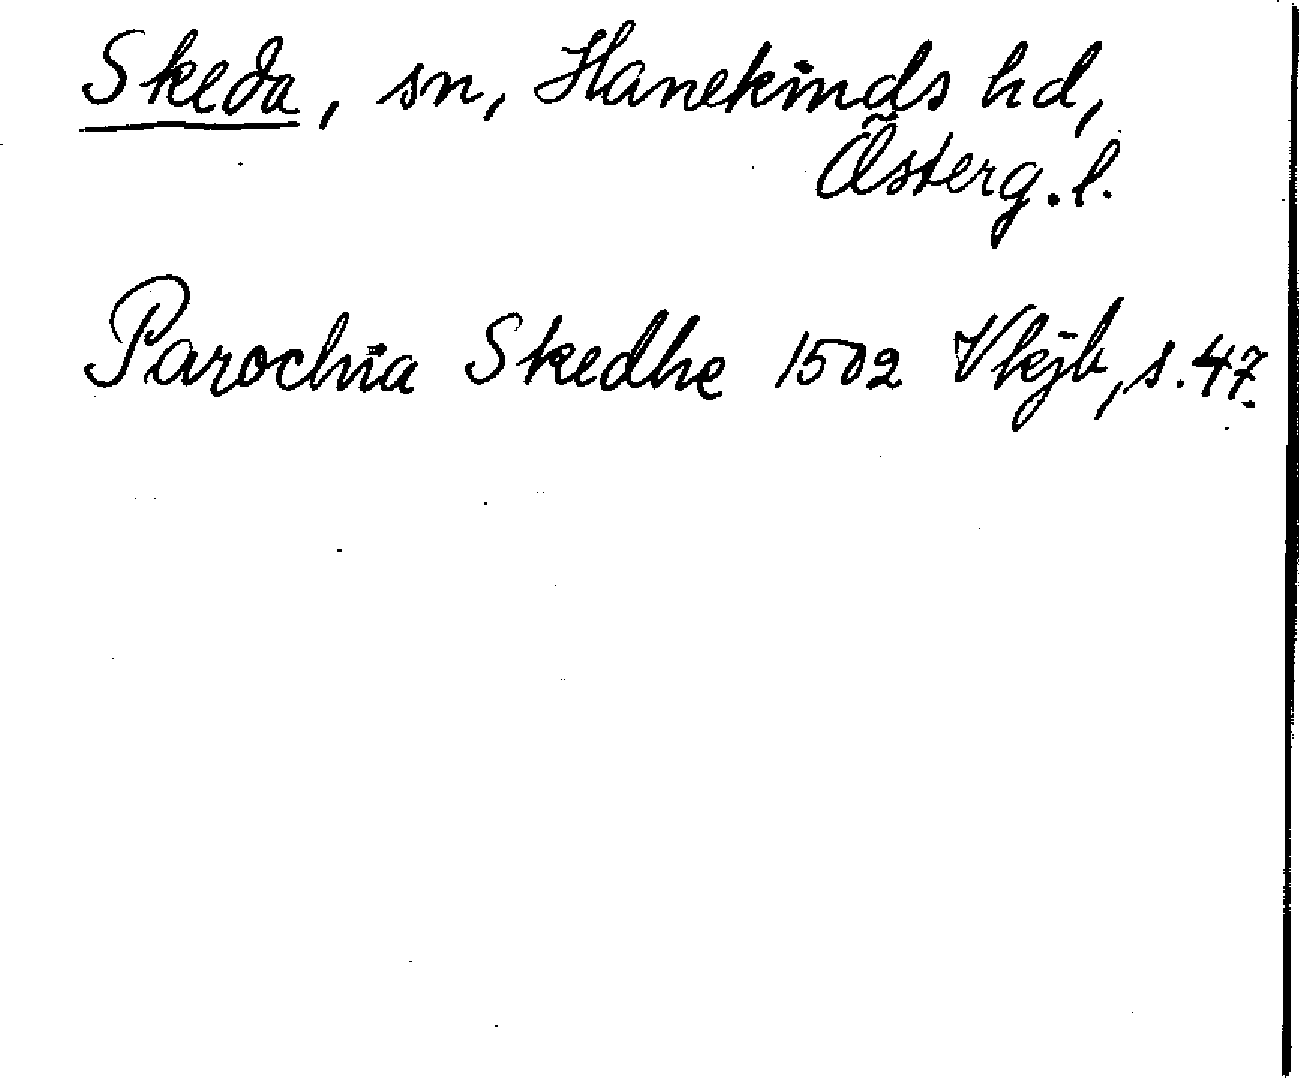 Skeda, sn, Hanekinds hd,
Österg.l.
Parochia Skedhe 1502 Vkjb, s. 47.